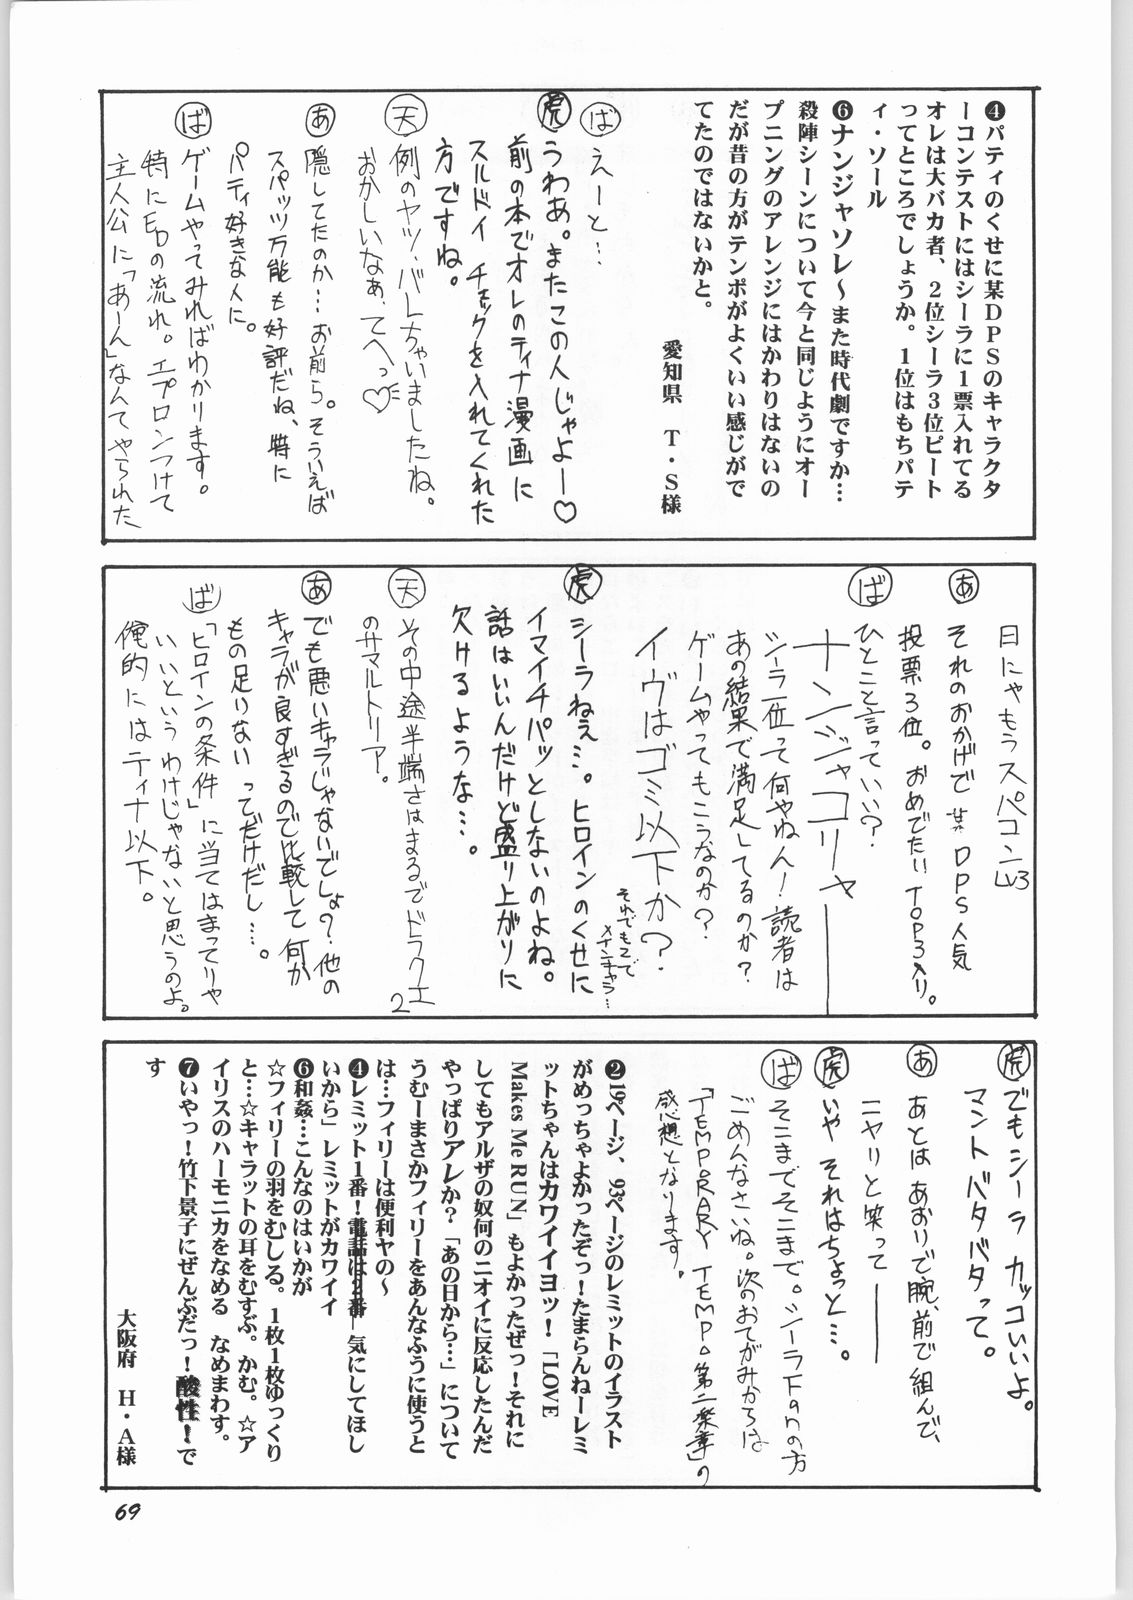 ❹パティのくせに某DPSのキャラクタ
ーコンテストにはシーラに1票入れてる
オレは大バカ者、2位シーラ3位ピート
ってところでしょうか。1位はもちパテ
ィ・ソール
❻ナンジャソレ～また時代劇ですか…
殺陣シーンについて今と同じようにオー
プニングのアレンジにはかわりはないの
だが昔の方がテンポがよくいい感じがで
てたのではないかと。
愛知県　T・S様
ば えーと…
虎 うわぁ。またこの人じゃよー♡
前の本でオレのティナ漫画に
スルドイ チェックを入れてくれた
方ですね。
天 例のヤツ・バレちゃいましたね。
おかしいなぁ、てへっ♡
あ 隠してたのか…お前ら。そういえば
スパッツ万能も好評だね、特に
パティ好きな人に。
ば ゲームやってみればわかります。
特にEDの流れ。エプロンつけて
主人公に「あーん」なんてやられた
日にゃもうスパコンLv3
あ それのおかげで某DPS人気
投票3位。おめでたいTOP3入り。
ば ひとこと言っていい?
ナンジャコリャ――
シーラ一位って何やねん!読者は
あの結果で満足してるのか?
ゲームやってもこうなのか?
イヴはゴミ以下か?
それでもzで
メインキャラ…
虎 シーラねぇ…。ヒロインのくせに
イマイチパッとしないのよね。
話はいいんだけど盛り上がりに
欠けるような…。
天 その中途半端さはまるでドラクエ2
のサマルトリア。
あ でも悪いキャラじゃないでしょ?他の
キャラが良すぎるので比較して何か
もの足りないってだけだし…。
ば 「ヒロインの条件」に当てはまってりゃ
いいというわけじゃないと思うのよ。
俺的にはティナ以下。
虎 でもシーラカッコいいよ。
マントバタバタって。
あ あとはあおりで腕、前で組んで、
ニヤリと笑って――
虎 いや それはちょっと…。
ば そこまでそこまで。シーラFanの方
ごめんなさいね。次のおてがみからは
「TEMPORARY TEMPO第二楽章」の
感想となります。
❷19ページ、93ページのレミットのイラスト
がめっちゃよかったぞっ!たまらんねーレミ
ットちゃんはカワイイヨッ!「LOVE
Makes Me RUN」もよかったぜっ!それに
してもアルザの奴何のニオイに反応したんだ
やっぱりアレか?「あの日から…」について
うむーまさかフィリーをあんなふうに使うと
は…フィリーは便利ヤの～
❹レミット1番!電話は2番―気にしてほし
いから」レミットがカワイイ
❻和姦…こんなのはいかが
☆フィリーの羽をむしる。1枚1枚ゆっくり
と…☆キャラットの耳をむすぶ。かむ。☆ア
イリスのハーモニカをなめる　なめまわす。
❼いやっ!竹下景子にぜんぶだっ!酸性!で
す
大阪府　H・A様
69